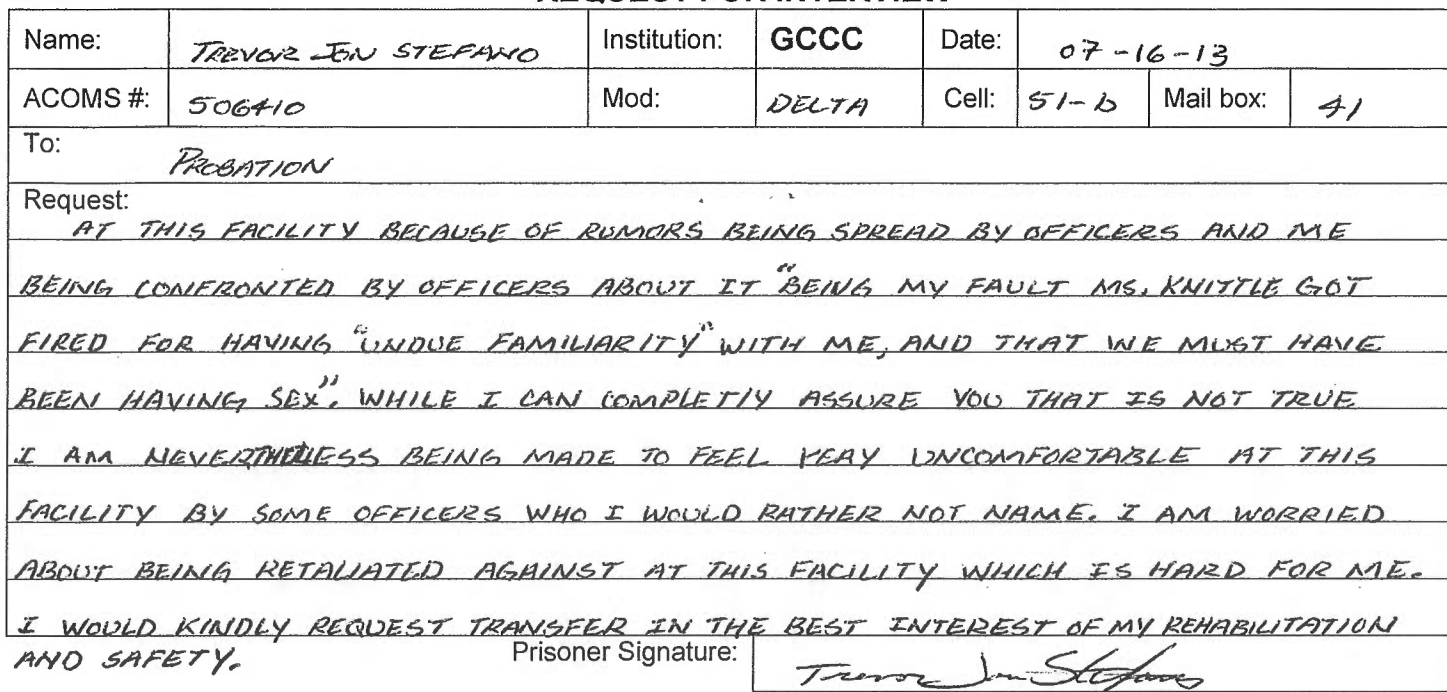 Name: TREVOR JON STEFANO Institution: GCCC Date: 07-16-13
ACOMS #: 506410 Mod: DELTA Cell: 51-b Mail box: 41
To: PROBATION
Request:
AT THIS FACILITY BECAUSE OF RUMORS BEING SPREAD BY OFFICERS AND ME
BEING CONFRONTED BY OFFICERS ABOUT IT "BEING MY FAULT MS. KNITTLE GOT
FIRED FOR HAVING "UNDUE FAMILIARITY" WITH ME, AND THAT WE MUST HAVE
BEEN HAVING SEX". WHILE I CAN COMPLETLY ASSURE YOU THAT IS NOT TRUE
I AM NEVERTHELESS BEING MADE TO FEEL VERY UNCOMFORTABLE AT THIS
FACILITY BY SOME OFFICERS WHO I WOULD RATHER NOT NAME. I AM WORRIED
ABOUT BEING RETALIATED AGAINST AT THIS FACILITY WHICH IS HARD FOR ME.
I WOULD KINDLY REQUEST TRANSFER IN THE BEST INTEREST OF MY REHABILITATION
AND SAFETY. Prisoner Signature: Trevor Jon Stefano